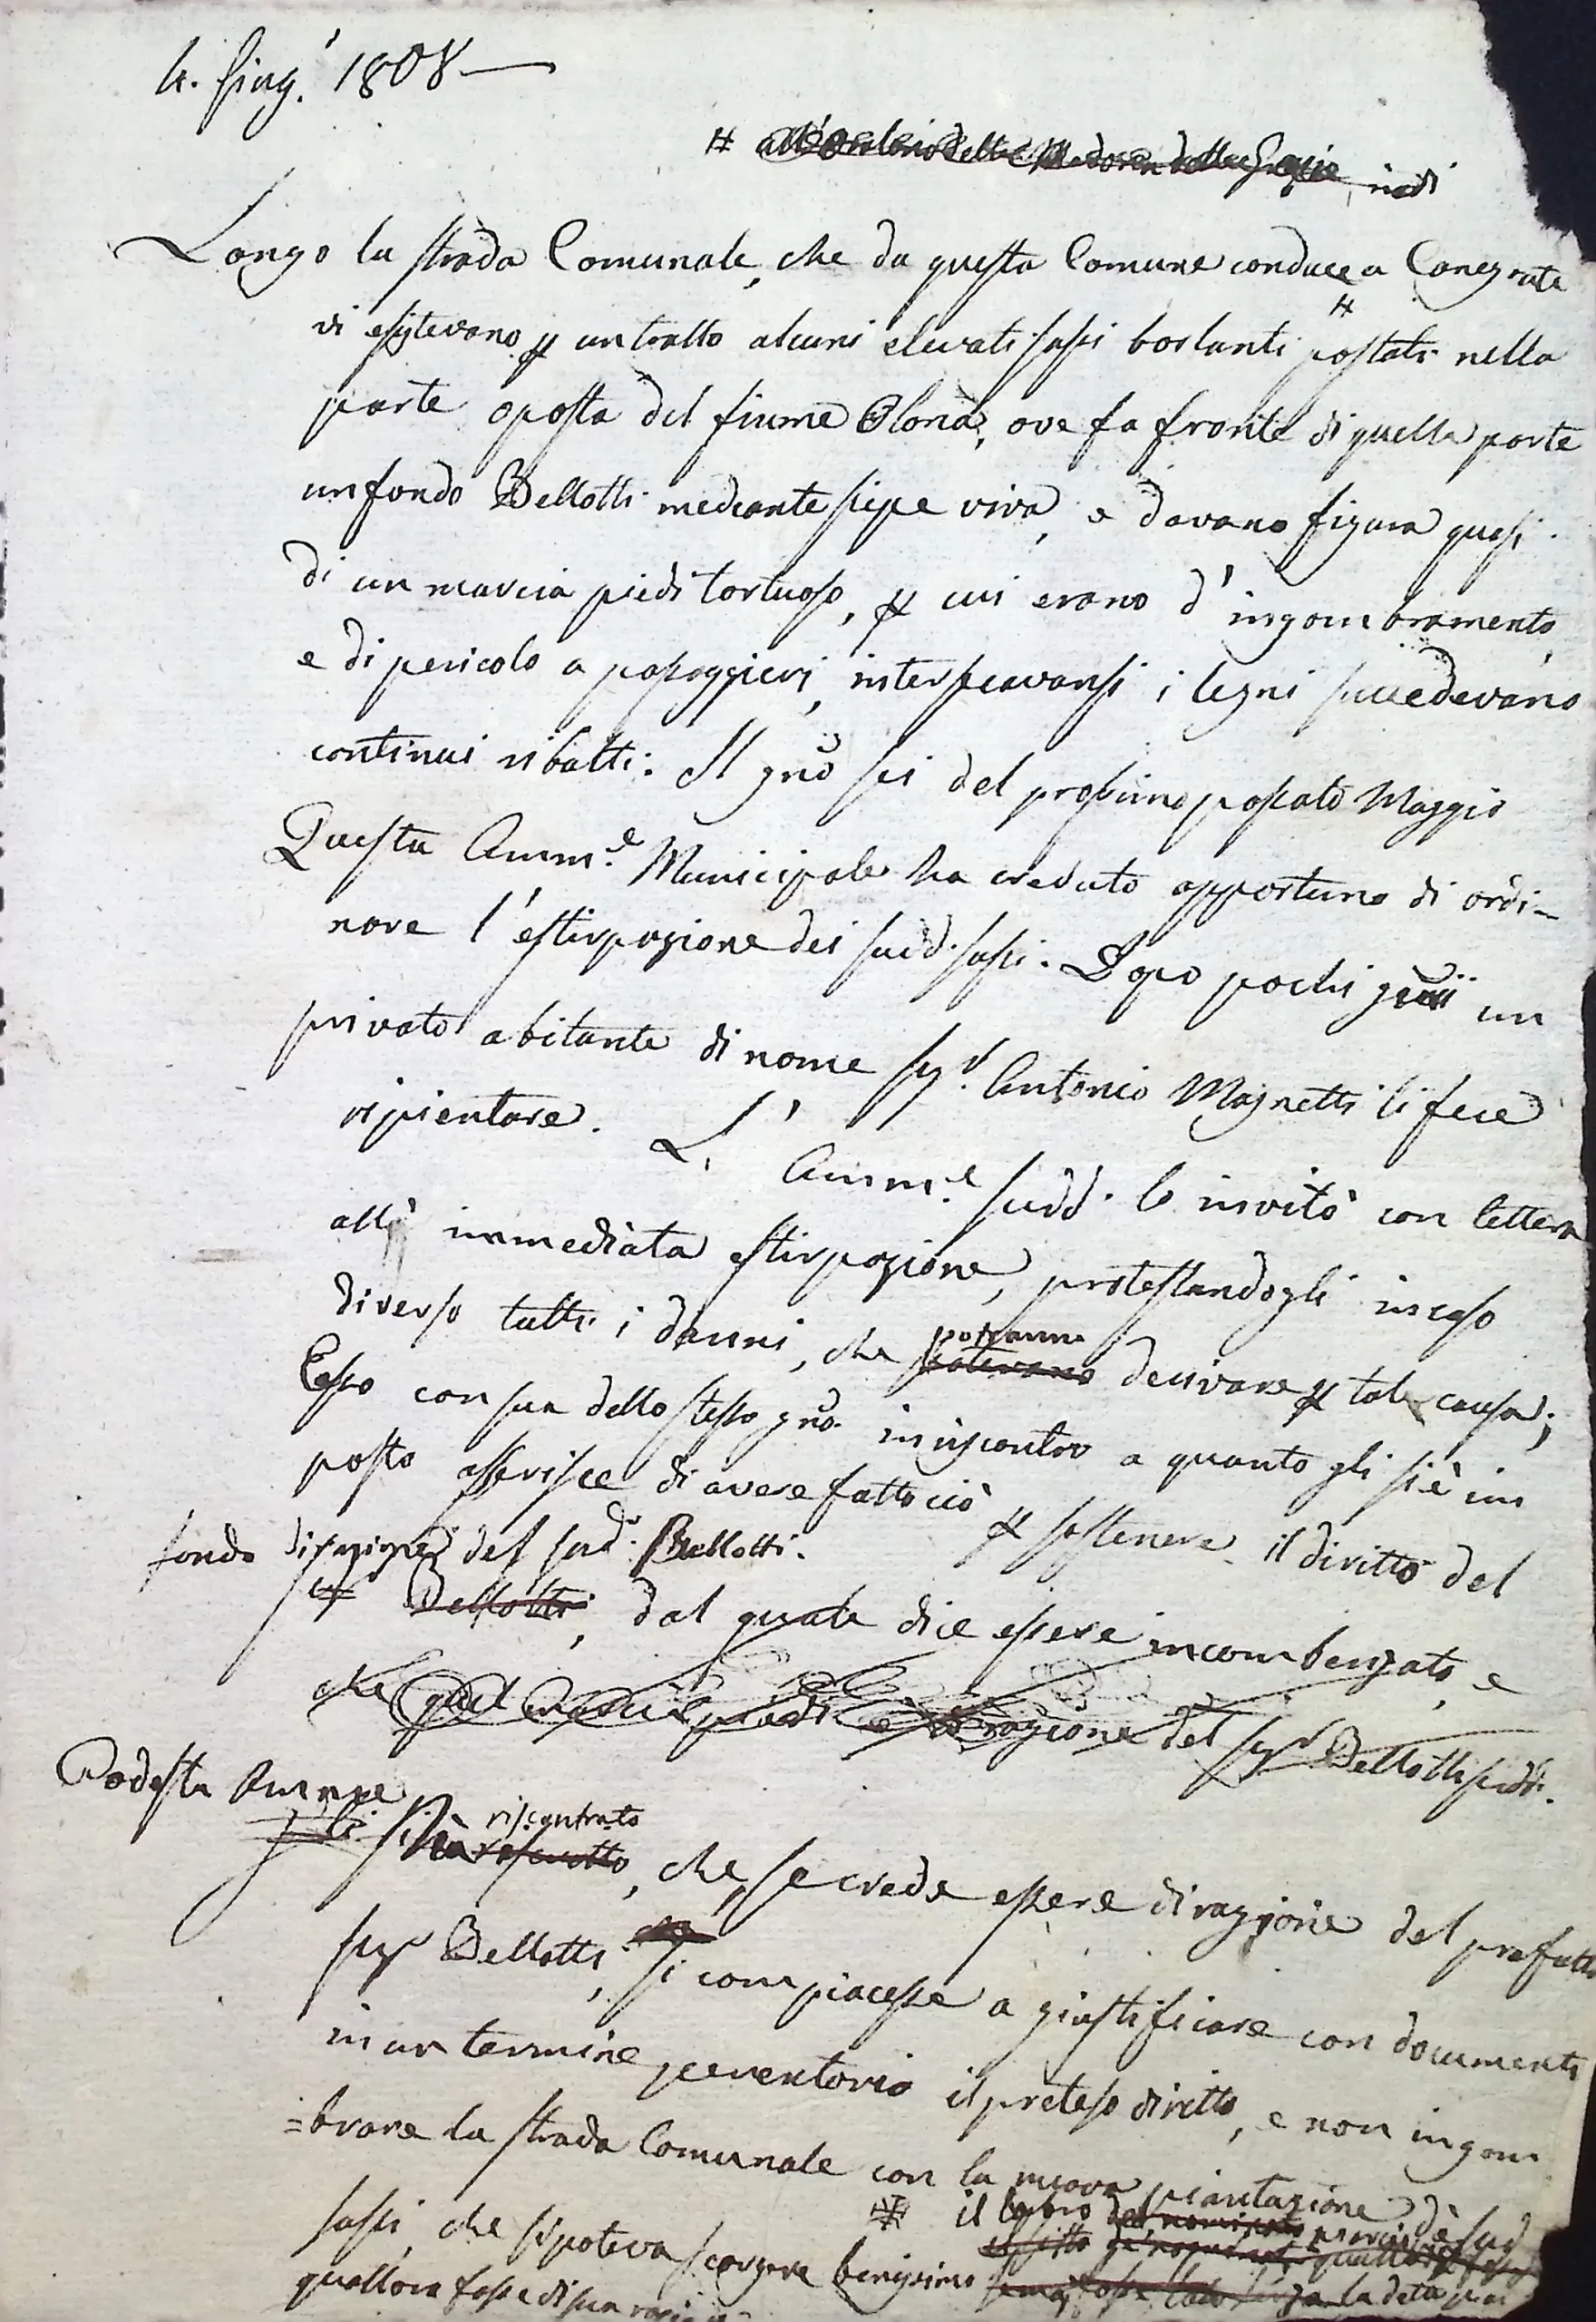 4. Giug.' 1808 —
# all'Oratorio della Madona delle Grazie
Longo la strada Comunale, che da questa Comune conduce a Canegrate
vi esistevano p un tratto alcuni elevati sassi bordanti # postati nella
parte oposta del fiume Olona, ove fa fronte di quella parte
un fondo Bellotti mediante siepe viva, e davano figura quasi
di un marcia piedi tortuoso, p cui erano d'ingombramento,
e di pericolo a passaggieri, intersecavansi i legni succedevano
continui ribatti. Il gno sei del prossimo passato Maggio
Questa Amm.e Municipale ha creduto opportuno di ordi-
nare l'estirpazione dei sudd. sassi. Dopo pochi gni un
privato abitante di nome Sig.r Antonio Magnetti li fece
ripientare. L'
Amm.e sudd. lo invitò con lettera
alla immediata estirpazione, protestandogli in caso
diverso tutti i danni, che potranno potevano derivare p tale causa;
Esso con sua dello stesso gno in riscontro a quanto gli si è im
posto asserisce di avere fatto ciò p sostenere il diritto del
fondo di ragione del sud.o Bellotti.
Sig.r Bellotti, dal quale dice essere incombenzato, e
che quel marcia piedi è di ragione del Sig.r Bellotti sudd.
Podestà
gli si è riscontrato, che se crede essere di raggione del prefatto
Sig.r Bellotti, si compiacesse a giustificare con documenti
in un termine perentorio il preteso diritto, e non ingom
=brare la strada Comunale con la nuova piantazione de sud
sassi, che si poteva scorgere benissimo
il del nominato marcia
qualora fosse di sua ragione